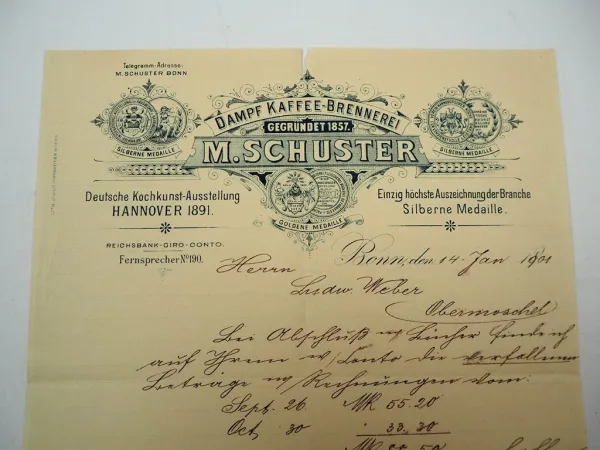 Telegramm-Adresse:
M. SCHUSTER BONN
DAMPF KAFFEE-BRENNEREI
GEGRÜNDET 1857.
M. SCHUSTER
SILBERNE MEDAILLE
SILBERNE MEDAILLE
GOLDENE MEDAILLE
Deutsche Kochkunst-Ausstellung
HANNOVER 1891.
Einzig höchste Auszeichnung der Branche
Silberne Medaille.
REICHSBANK-GIRO-CONTO.
Fernsprecher No 190.
Bonn, den 14 Jan 1901
Herrn
Ludw. Weber
Obermoschel
Bei Abschluß m/ Bücher finde ich
auf Ihrem w/ Conto die verfallenen
Betrage m/ Rechnungen vom:
Sept. 26 Mk 55.20
Oct 30 " 33.30